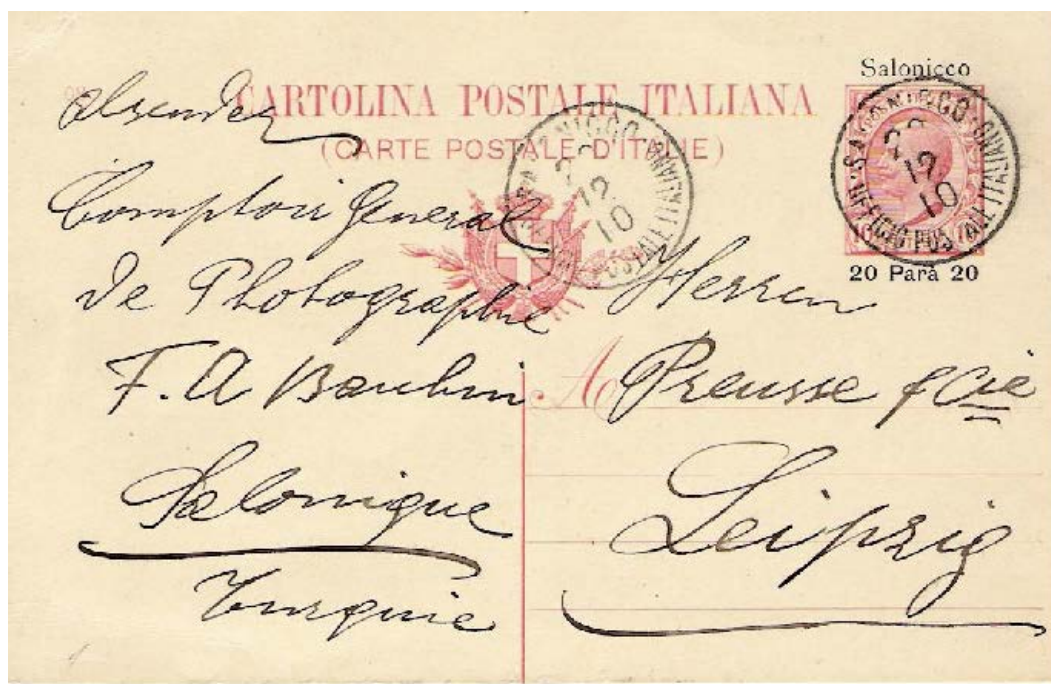 Salonicco
CARTOLINA POSTALE ITALIANA
(CARTE POSTALE D'ITALIE)
SALONICCO
UFFICIO POSTALE ITALIANO
12
10
SALONICCO
UFFICIO POSTALE ITALIANO
12
10
20 Parà 20
Absender
Comptoir General
de Photographie
F. A Baubin
Salonique
Turquie
Herren
A Preusse & Cie
Leipzig